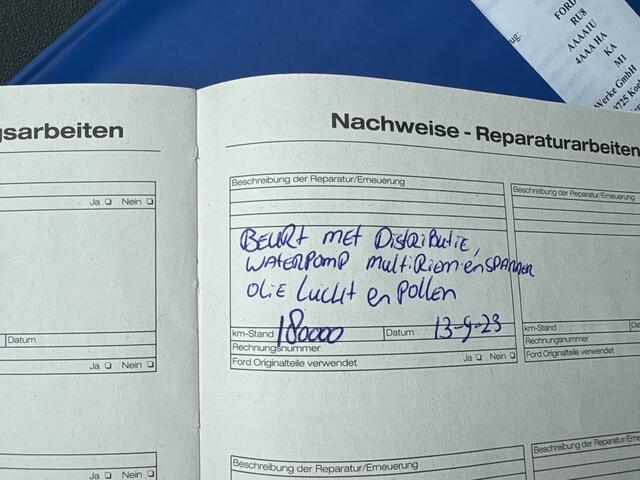 FORD
RU8
AAAA1U
4AAA HA
KA
M1
Werke GmbH
Nachweise - Reparaturarbeiten
Ja Nein
Datum
Ja Nein
Ja Nein
Beschreibung der Reparatur/Erneuerung
BEURT MET DISTRIBUTIE,
WATERPOMP MULTIRIEM EN SPANNER
OLIE LUCHT EN POLLEN
km-Stand 180000 Datum 13-9-23
Rechnungsnummer
Ford Originalteile verwendet Ja Nein
Beschreibung der
km-Stand
Rechnungsnummer
Ford Originalteile
Beschreibung der Reparatur/Erneuerung
Beschreibung der Re